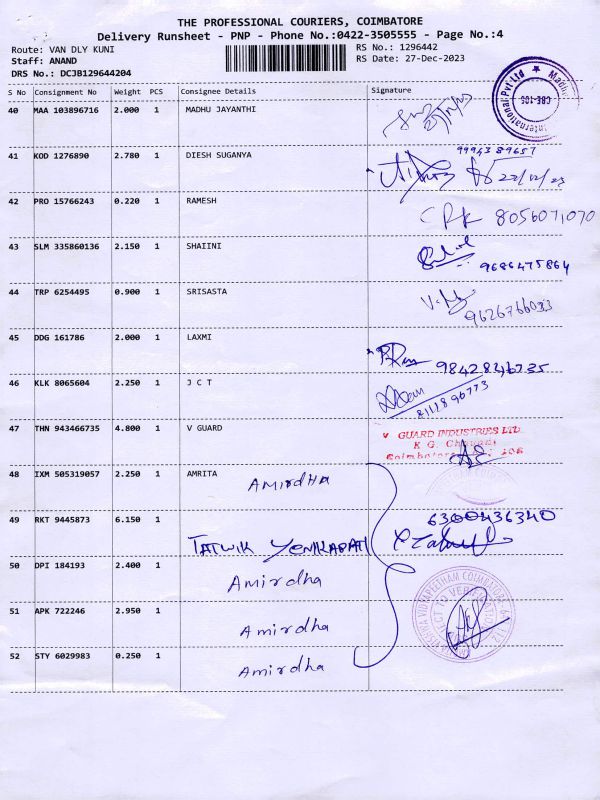 THE PROFESSIONAL COURIERS, COIMBATORE
Delivery Runsheet - PNP - Phone No.:0422-3505555 - Page No.:4
Route: VAN DLY KUNI
RS No.: 1296442
Staff: ANAND
RS Date: 27-Dec-2023
DRS No.: DCJB129644204
S No Consignment No Weight PCS Consignee Details Signature
40 MAA 103896716 2.000 1 MADHU JAYANTHI
International Pvt Ltd
CBE-105
41 KOD 1276890 2.780 1 DIESH SUGANYA
9994389657
42 PRO 15766243 0.220 1 RAMESH
8056071070
43 SLM 335860136 2.150 1 SHAIINI
9686475864
44 TRP 6254495 0.900 1 SRISASTA
9626766033
45 DDG 161786 2.000 1 LAXMI
9842846735
46 KLK 8065604 2.250 1 J C T
8111896773
47 THN 943466735 4.800 1 V GUARD
V GUARD INDUSTRIES LTD
K G
Coimbatore
48 IXM 505319057 2.250 1 AMRITA
AMIRDHA
49 RKT 9445873 6.150 1
6300436340
TATWIK
50 DPI 184193 2.400 1
Amirdha
51 APK 722246 2.950 1
Amirdha
52 STY 6029983 0.250 1
Amirdha
VIDYAPEETHAM COIMBATORE